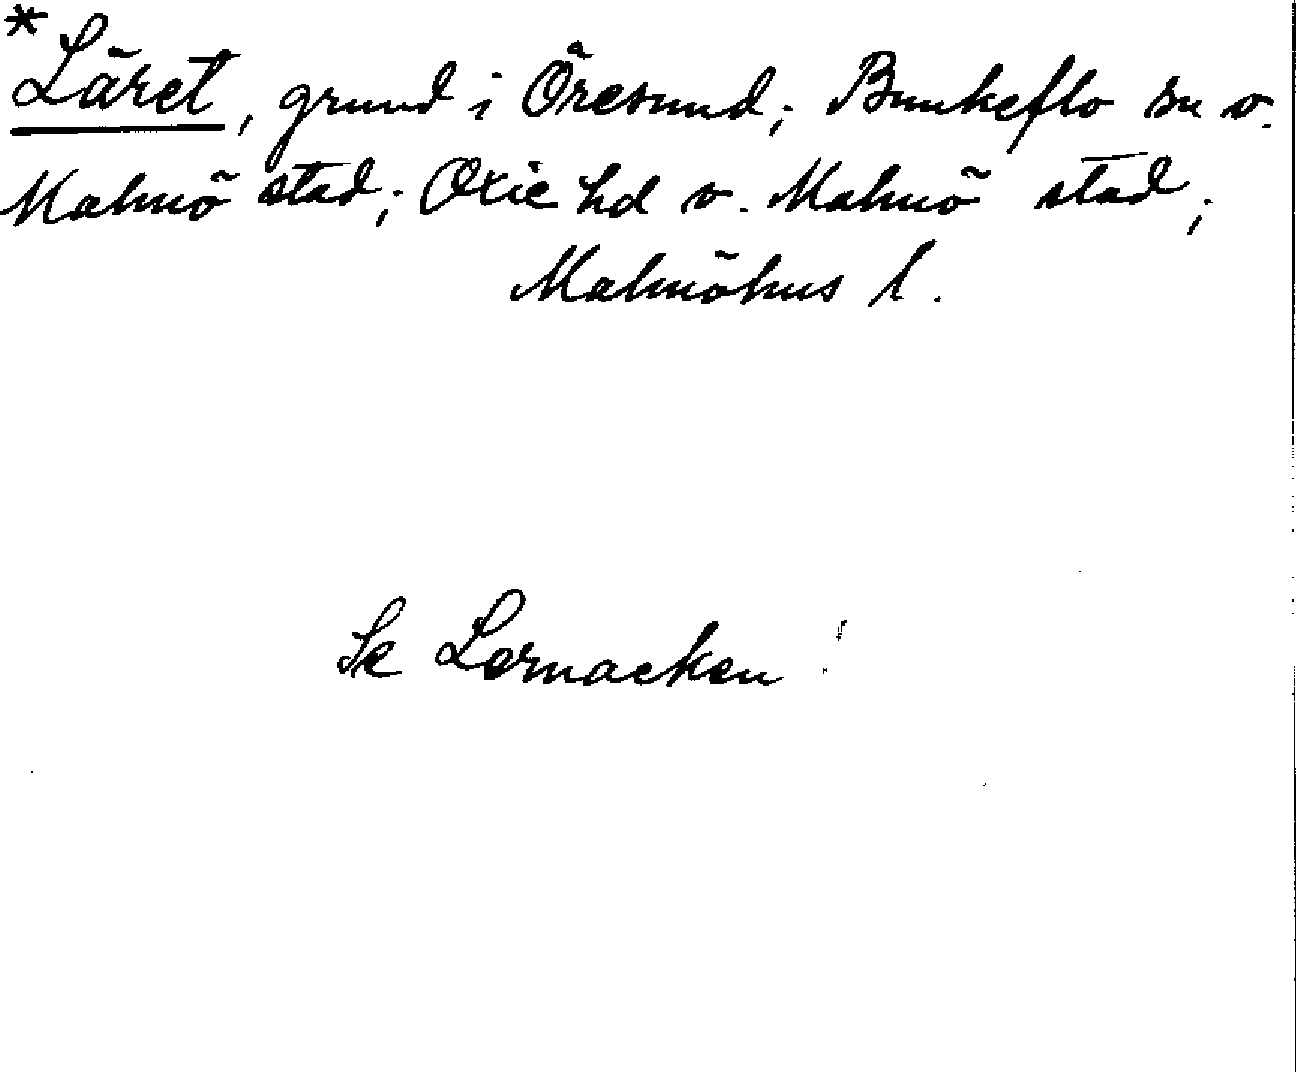 *Läret, grund i Öresund; Bunkeflo sn o.
Malmö stad; Oxie hd o. Malmö stad;
Malmöhus l.
Se Lernacken!